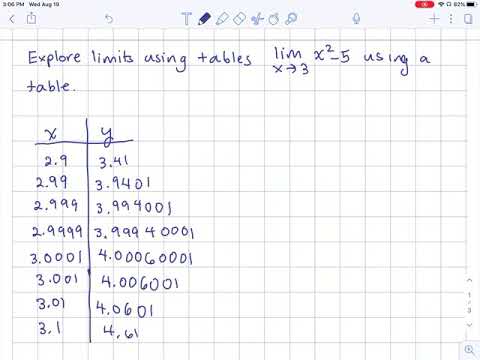 3:06 PM Wed Aug 19
82%
T
Explore limits using tables lim x²-5 using a
x→3
table.
x y
2.9 3.41
2.99 3.9401
2.999 3.994001
2.9999 3.99940001
3.0001 4.00060001
3.001 4.006001
3.01 4.0601
3.1 4.61
1
/
3